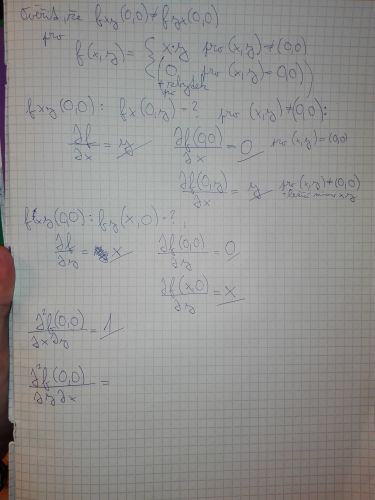 f_xy (0,0) ≠ f_yx (0,0)
pro
f(x,y) = { x·y pro (x,y) ≠ (0,0)
0 pro (x,y) = (0,0)
f_xy (0,0) : f_x (0,y) = ? pro (x,y) ≠ (0,0):
∂f/∂x = y ∂f(0,0)/∂x = 0 pro (x,y) = (0,0)
∂f(0,y)/∂x = y pro (x,y) ≠ (0,0)
f_xy (0,0) : f_y (x,0) = ?
∂f/∂y = x ∂f(0,0)/∂y = 0
∂f(x,0)/∂y = x
∂²f(0,0)/∂x∂y = 1
∂²f(0,0)/∂y∂x =